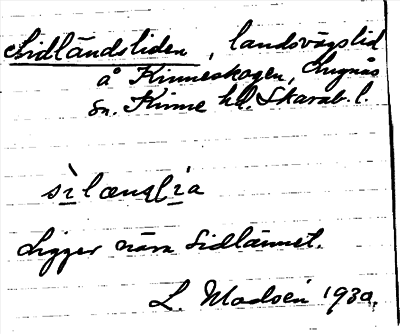 Sidländsliden, landsvägslid
å Kinneskogen, Lugnås
sn. Kinne hd. Skarab. l.
sìlænslìa
Ligger nära Sidlännet.
L. Madsén 1930.